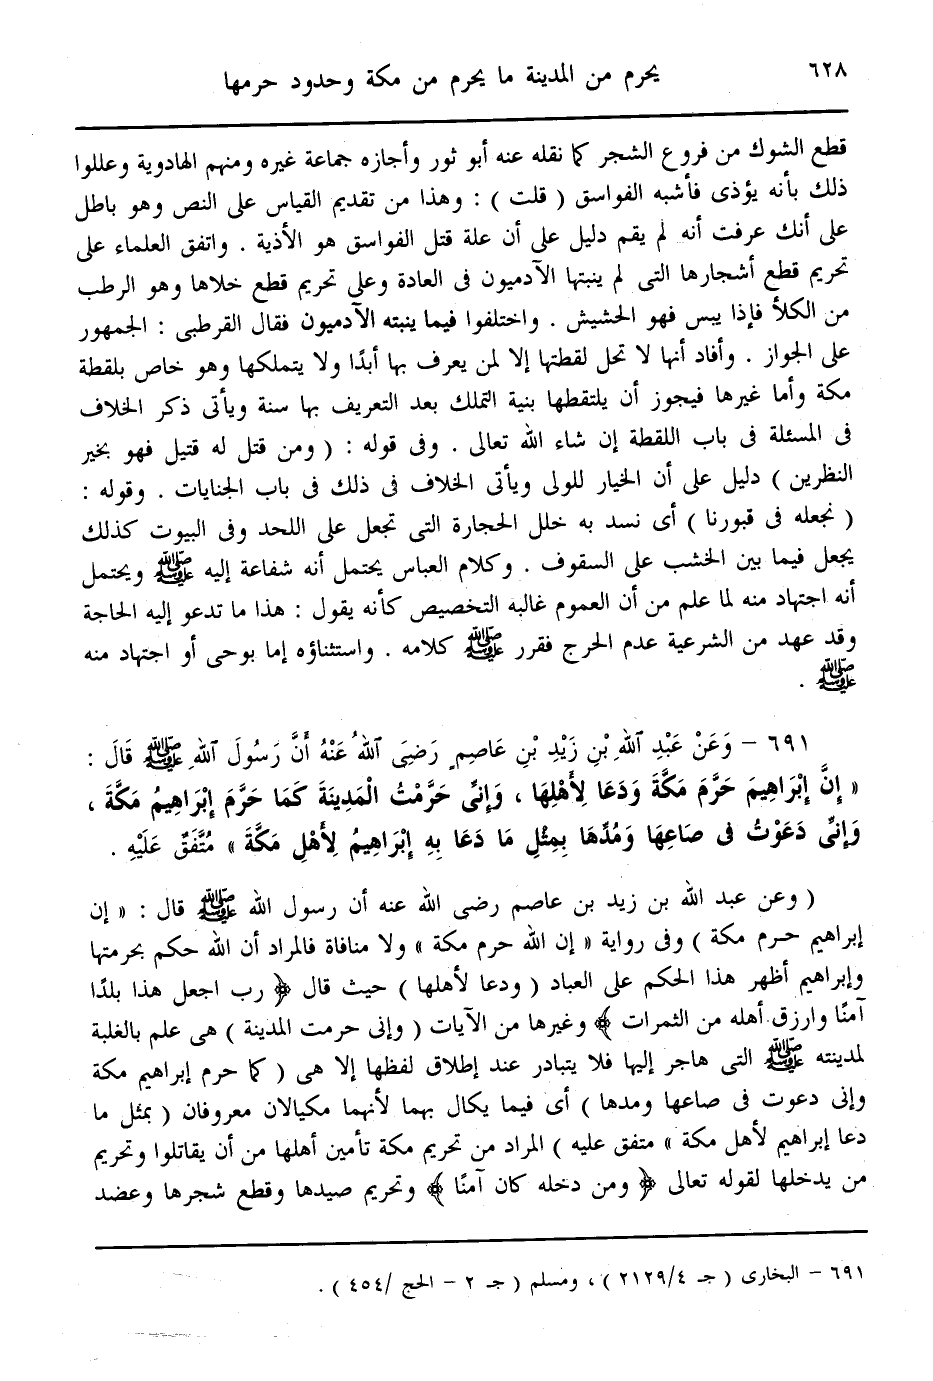 ٦٢٨
يحرم من المدينة ما يحرم من مكة وحدود حرمها
قطع الشوك من فروع الشجر كما نقله عنه أبو ثور وأجازه جماعة غيره ومنهم الهادوية وعللوا
ذلك بأنه يؤذى فأشبه الفواسق ( قلت ) : وهذا من تقديم القياس على النص وهو باطل
على أنك عرفت أنه لم يقم دليل على أن علة قتل الفواسق هو الأذية . واتفق العلماء على
تحريم قطع أشجارها التى لم ينبتها الآدميون فى العادة وعلى تحريم قطع خلاها وهو الرطب
من الكلأ فإذا يبس فهو الحشيش . واختلفوا فيما ينبته الآدميون فقال القرطبى : الجمهور
على الجواز . وأفاد أنها لا تحل لقطتها إلا لمن يعرف بها أبدًا ولا يتملكها وهو خاص بلقطة
مكة وأما غيرها فيجوز أن يلتقطها بنية التملك بعد التعريف بها سنة ويأتى ذكر الخلاف
فى المسئلة فى باب اللقطة إن شاء الله تعالى . وفى قوله : ( ومن قتل له قتيل فهو بخير
النظرين ) دليل على أن الخيار للولى ويأتى الخلاف فى ذلك فى باب الجنايات . وقوله :
( نجعله فى قبورنا ) أى نسد به خلل الحجارة التى تجعل على اللحد وفى البيوت كذلك
يجعل فيما بين الخشب على السقوف . وكلام العباس يحتمل أنه شفاعة إليه ﷺ ويحتمل
أنه اجتهاد منه لما علم من أن العموم غالبه التخصيص كأنه يقول : هذا ما تدعو إليه الحاجة
وقد عهد من الشرعية عدم الحرج فقرر ﷺ كلامه . واستثناؤه إما بوحى أو اجتهاد منه
ﷺ .
٦٩١ – وَعَنْ عَبْدِ اللهِ بْنِ زَيْدِ بْنِ عَاصِمٍ رَضِىَ اللهُ عَنْهُ أَنَّ رَسُولَ اللهِ ﷺ قَالَ :
« إِنَّ إِبْرَاهِيمَ حَرَّمَ مَكَّةَ وَدَعَا لِأَهْلِهَا ، وَإِنِّى حَرَّمْتُ الْمَدِينَةَ كَمَا حَرَّمَ إِبْرَاهِيمُ مَكَّةَ ،
وَإِنِّى دَعَوْتُ فى صَاعِهَا وَمُدِّهَا بِمِثْلِ مَا دَعَا بِهِ إِبْرَاهِيمُ لِأَهْلِ مَكَّةَ » مُتَّفَقٌ عَلَيْهِ .
( وعن عبد الله بن زيد بن عاصم رضى الله عنه أن رسول الله ﷺ قال : « إن
إبراهيم حرم مكة ) وفى رواية « إن الله حرم مكة » ولا منافاة فالمراد أن الله حكم بحرمتها
وإبراهيم أظهر هذا الحكم على العباد ( ودعا لأهلها ) حيث قال ﴿ رب اجعل هذا بلدًا
آمنًا وارزق أهله من الثمرات ﴾ وغيرها من الآيات ( وإنى حرمت المدينة ) هى علم بالغلبة
لمدينته ﷺ التى هاجر إليها فلا يتبادر عند إطلاق لفظها إلا هى ( كما حرم إبراهيم مكة
وإنى دعوت فى صاعها ومدها ) أى فيما يكال بهما لأنهما مكيالان معروفان ( بمثل ما
دعا إبراهيم لأهل مكة » متفق عليه ) المراد من تحريم مكة تأمين أهلها من أن يقاتلوا وتحريم
من يدخلها لقوله تعالى ﴿ ومن دخله كان آمنًا ﴾ وتحريم صيدها وقطع شجرها وعضد
٦٩١ – البخارى ( جـ ٢١٢٩/٤ ) ، ومسلم ( جـ ٢ – الحج /٤٥٤ ) .